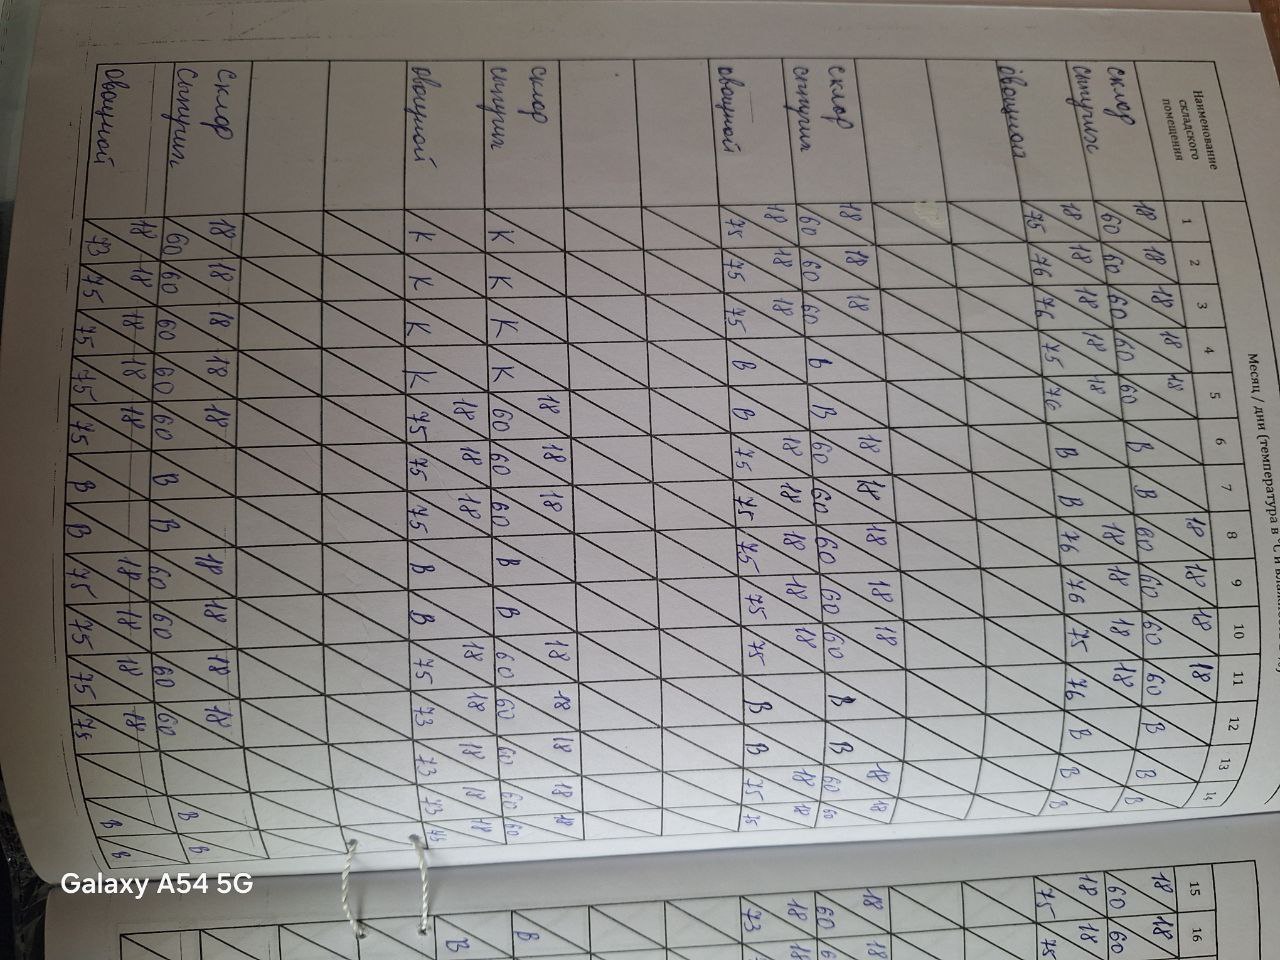 Месяц / дни (температура в °С и влажнос
Наименование складского помещения 1 2 3 4 5 6 7 8 9 10 11 12 13 14
склад сыпучих 18/60 18/60 18/60 18/60 18/60 В В 18/60 18/60 18/60 18/60 В В В
овощной 18/75 18/76 18/76 18/75 18/76 В В 18/76 18/76 18/75 18/76 В В В
склад сыпучих 18/60 18/60 18/60 В В 18/60 18/60 18/60 18/60 18/60 В В 18/60 18/60
овощной 18/75 18/75 18/75 В В 18/75 18/75 18/75 18/75 18/75 В В 18/75 18/75
склад сыпучих К К К К 18/60 18/60 18/60 В В 18/60 18/60 18/60 18/60 18/60
овощной К К К К 18/75 18/75 18/75 В В 18/75 18/73 18/73 18/73
склад сыпучих 18/60 18/60 18/60 18/60 18/60 В В 18/60 18/60 18/60 18/60 В В
овощной 18/73 18/75 18/75 18/75 18/75 В В 18/75 18/75 18/75 18/75 В В
15 16
18/60 18/60
18/75 18/75
18/60 18
18/73 18
В
В
Galaxy A54 5G